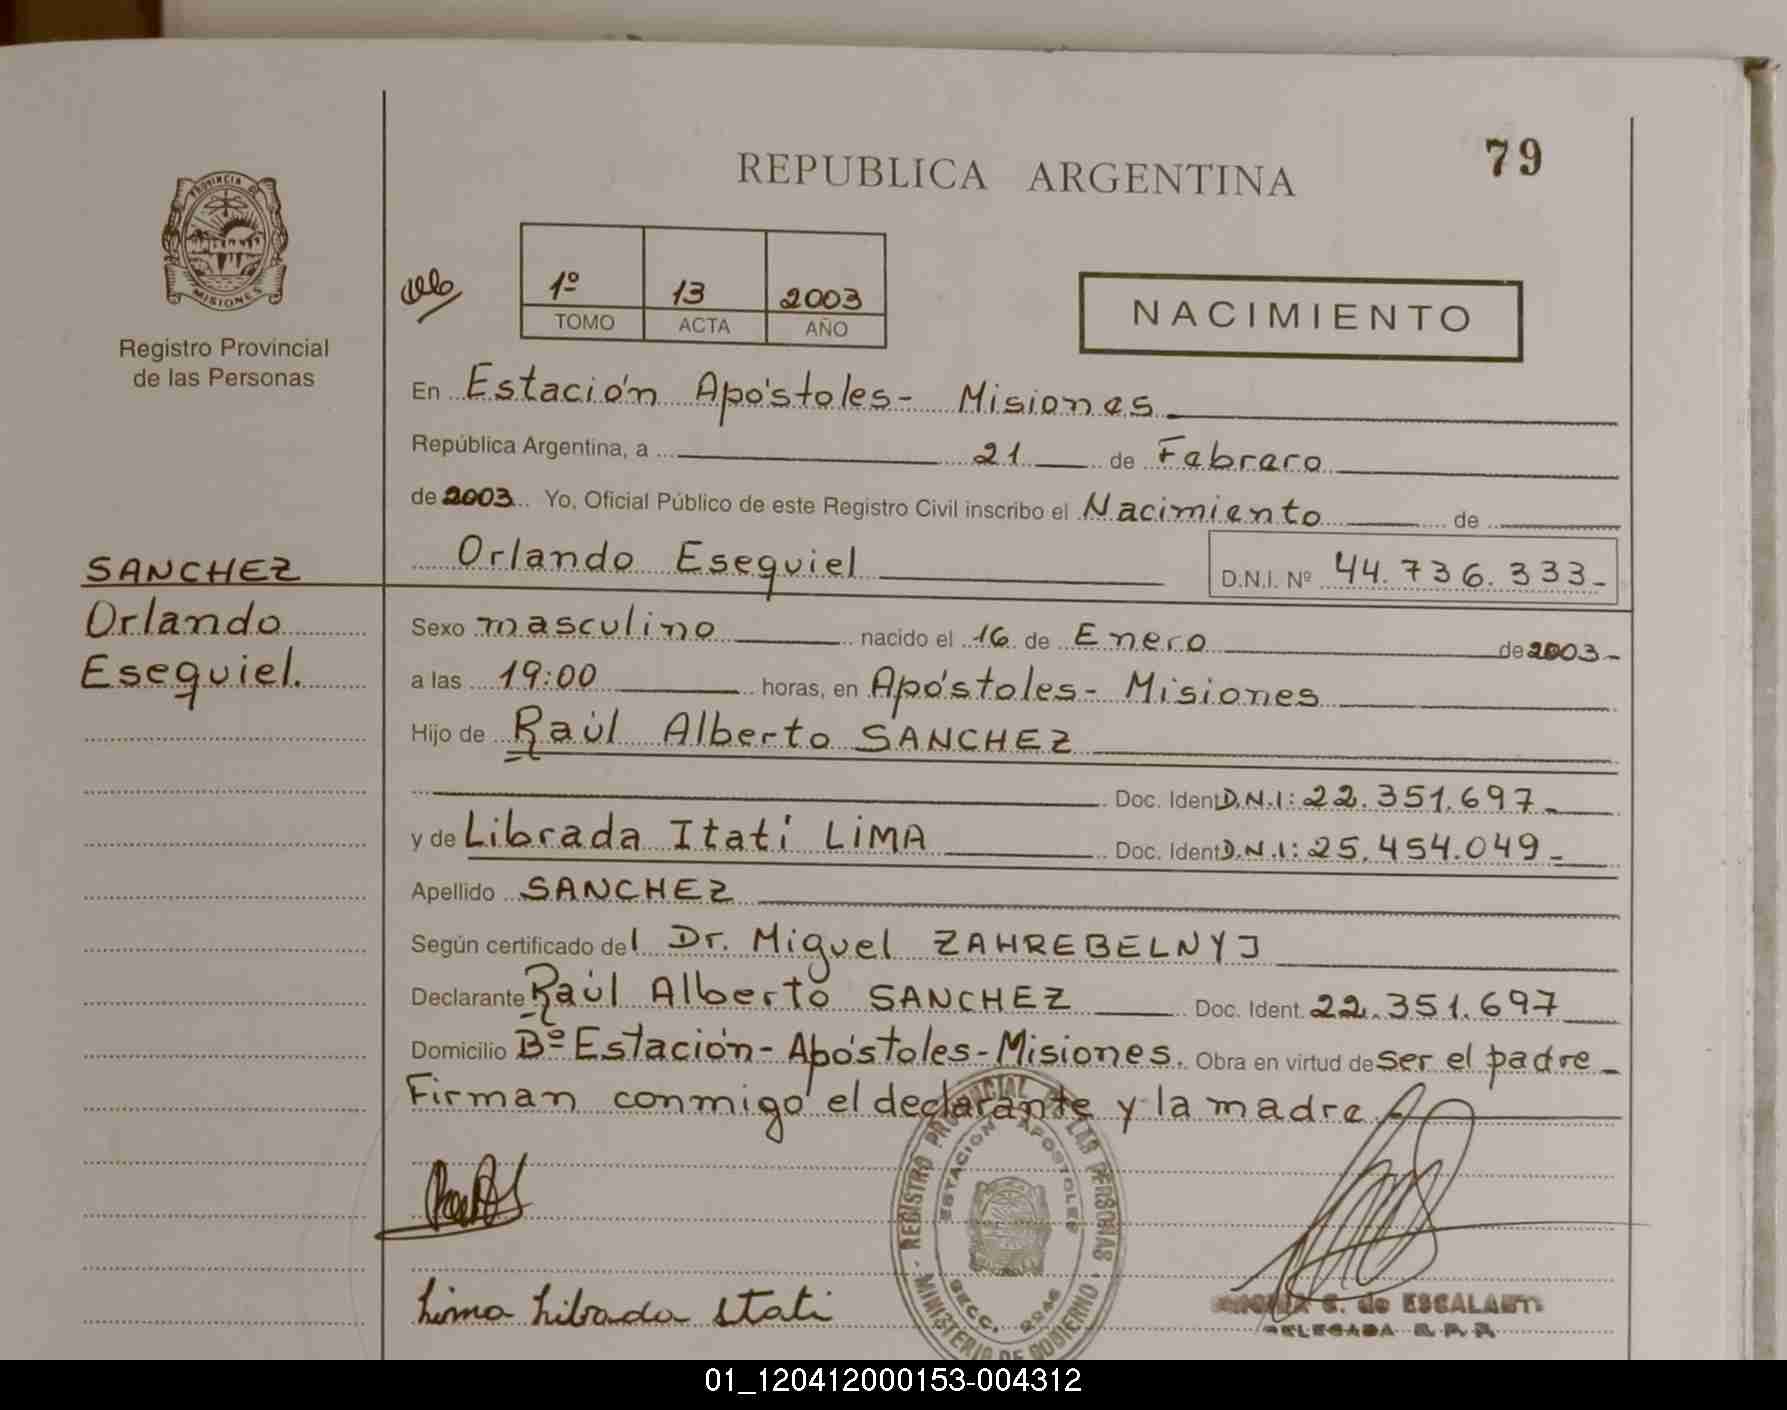 79
REPUBLICA ARGENTINA
PROVINCIA DE
MISIONES
Registro Provincial
de las Personas
1º 13 2003
TOMO ACTA AÑO
NACIMIENTO
En Estación Apóstoles - Misiones
República Argentina, a 21 de Febrero
de 2003 Yo, Oficial Público de este Registro Civil inscribo el Nacimiento de
Orlando Esequiel D.N.I. Nº 44.736.333-
SANCHEZ
Orlando
Esequiel.
Sexo masculino nacido el 16 de Enero de 2003-
a las 19:00 horas, en Apóstoles - Misiones
Hijo de Raúl Alberto SANCHEZ
Doc. Ident D.N.I: 22.351.697-
y de Librada Itatí LIMA Doc. Ident D.N.I: 25.454.049-
Apellido SANCHEZ
Según certificado del Dr. Miguel ZAHREBELNYJ
Declarante Raúl Alberto SANCHEZ Doc. Ident. 22.351.697
Domicilio Bº Estación - Apóstoles - Misiones. Obra en virtud de ser el padre-
Firman conmigo el declarante y la madre
REGISTRO PROVINCIAL DE LAS PERSONAS
ESTACION APOSTOLES
SECC.
MINISTERIO DE GOBIERNO
Lima Librada Itati
de ESCALANT
DELEGADA R.P.P.
01_120412000153-004312